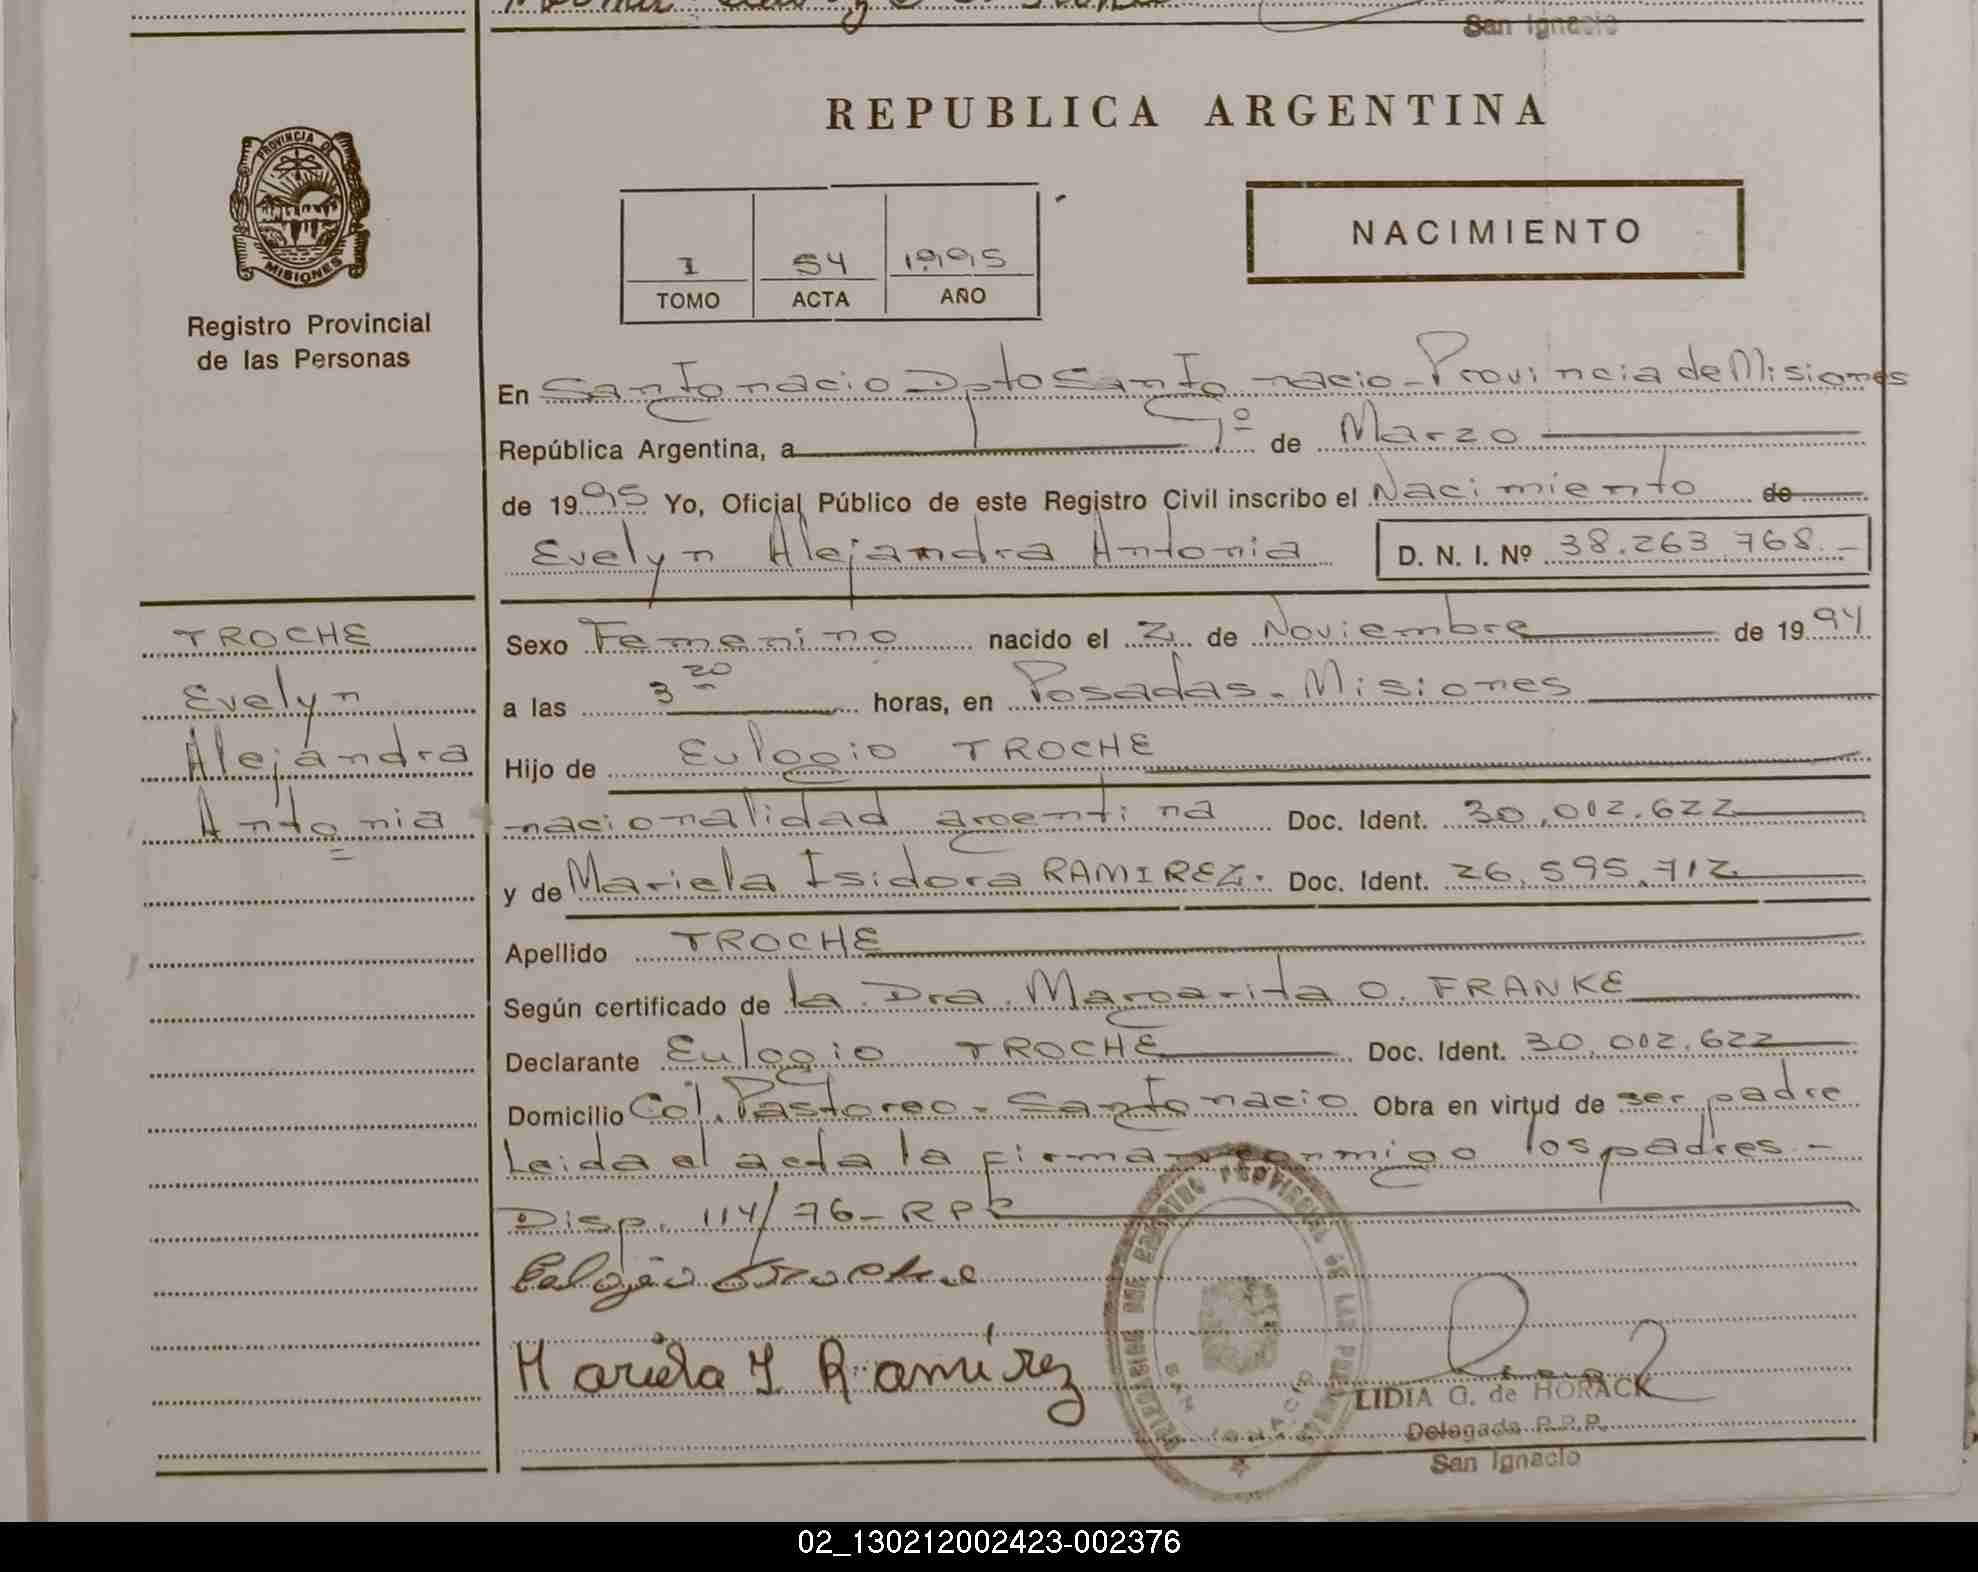 San Ignacio
PROVINCIA DE
MISIONES
Registro Provincial
de las Personas
REPUBLICA ARGENTINA
NACIMIENTO
1 54 1995
TOMO ACTA AÑO
En San Ignacio Dpto San Ignacio - Provincia de Misiones
República Argentina, a 1º de Marzo
de 1995 Yo, Oficial Público de este Registro Civil inscribo el Nacimiento de
Evelyn Alejandra Antonia D. N. I. Nº 38.263.768.-
TROCHE
Evelyn
Alejandra
Antonia
Sexo Femenino nacido el 2 de Noviembre de 1994
a las 3 20 horas, en Posadas - Misiones
Hijo de Eulogio TROCHE
nacionalidad argentina Doc. Ident. 30.002.622
y de Mariela Isidora RAMIREZ. Doc. Ident. 26.595.712
Apellido TROCHE
Según certificado de la Dra. Margarita O. FRANKE
Declarante Eulogio TROCHE Doc. Ident. 30.002.622
Domicilio Col. Pastoreo - San Ignacio Obra en virtud de ser padre
Leida el acta la firman conmigo los padres -
Disp. 114/76 - RPP
Eulogio Troche
Mariela I Ramirez
PROVINCIAL DE LAS PERSONAS
SAN IGNACIO
LIDIA G. de HORACK
Delegada R.P.P.
San Ignacio
02_130212002423-002376